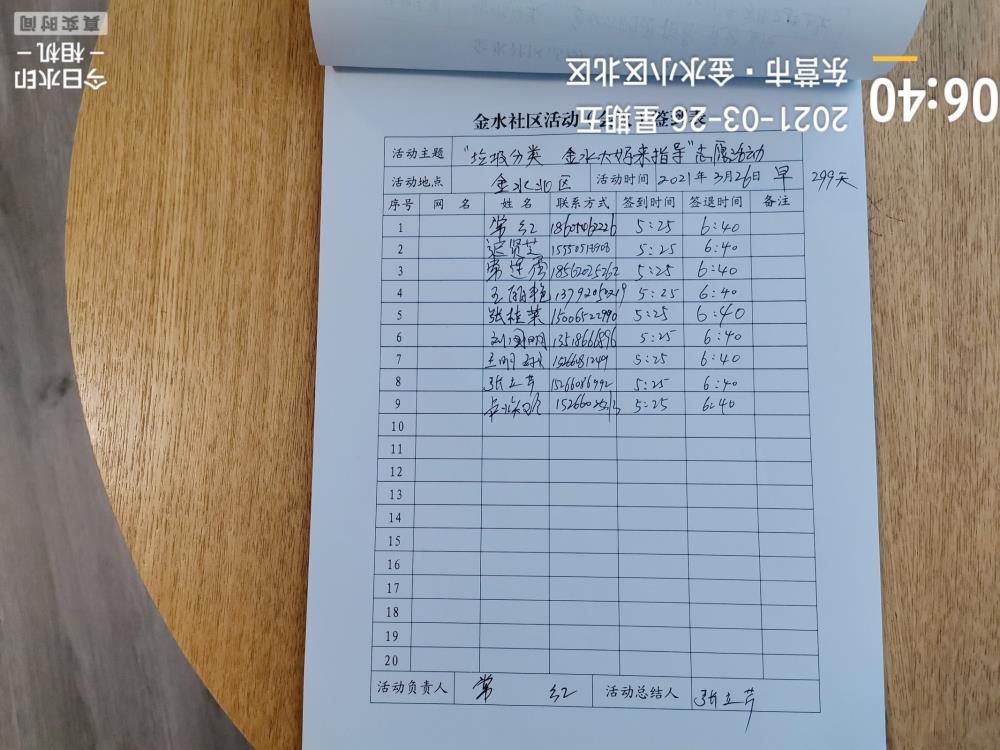 06:40
2021-03-26 星期五
东营市·金水小区北区
今日水印
-相机-
真实时间
金水社区活动 签到表
活动主题 "垃圾分类 金水大好来指导"志愿活动
活动地点 金水北区 活动时间 2021年3月26日 早 299天
序号 网 名 姓 名 联系方式 签到时间 签退时间 备注
1 常红 18605462226 5:25 6:40
2 迟贤芝 5:25 6:40
3 常连雪 18562025262 5:25 6:40
4 王丽艳 13792050219 5:25 6:40
5 张桂荣 15006522990 5:25 6:40
6 刘国明 1351866896 5:25 6:40
7 王明 5:25 6:40
8 张立芹 15266086992 5:25 6:40
9 5:25 6:40
10
11
12
13
14
15
16
17
18
19
20
活动负责人 常 红 活动总结人 张立芹